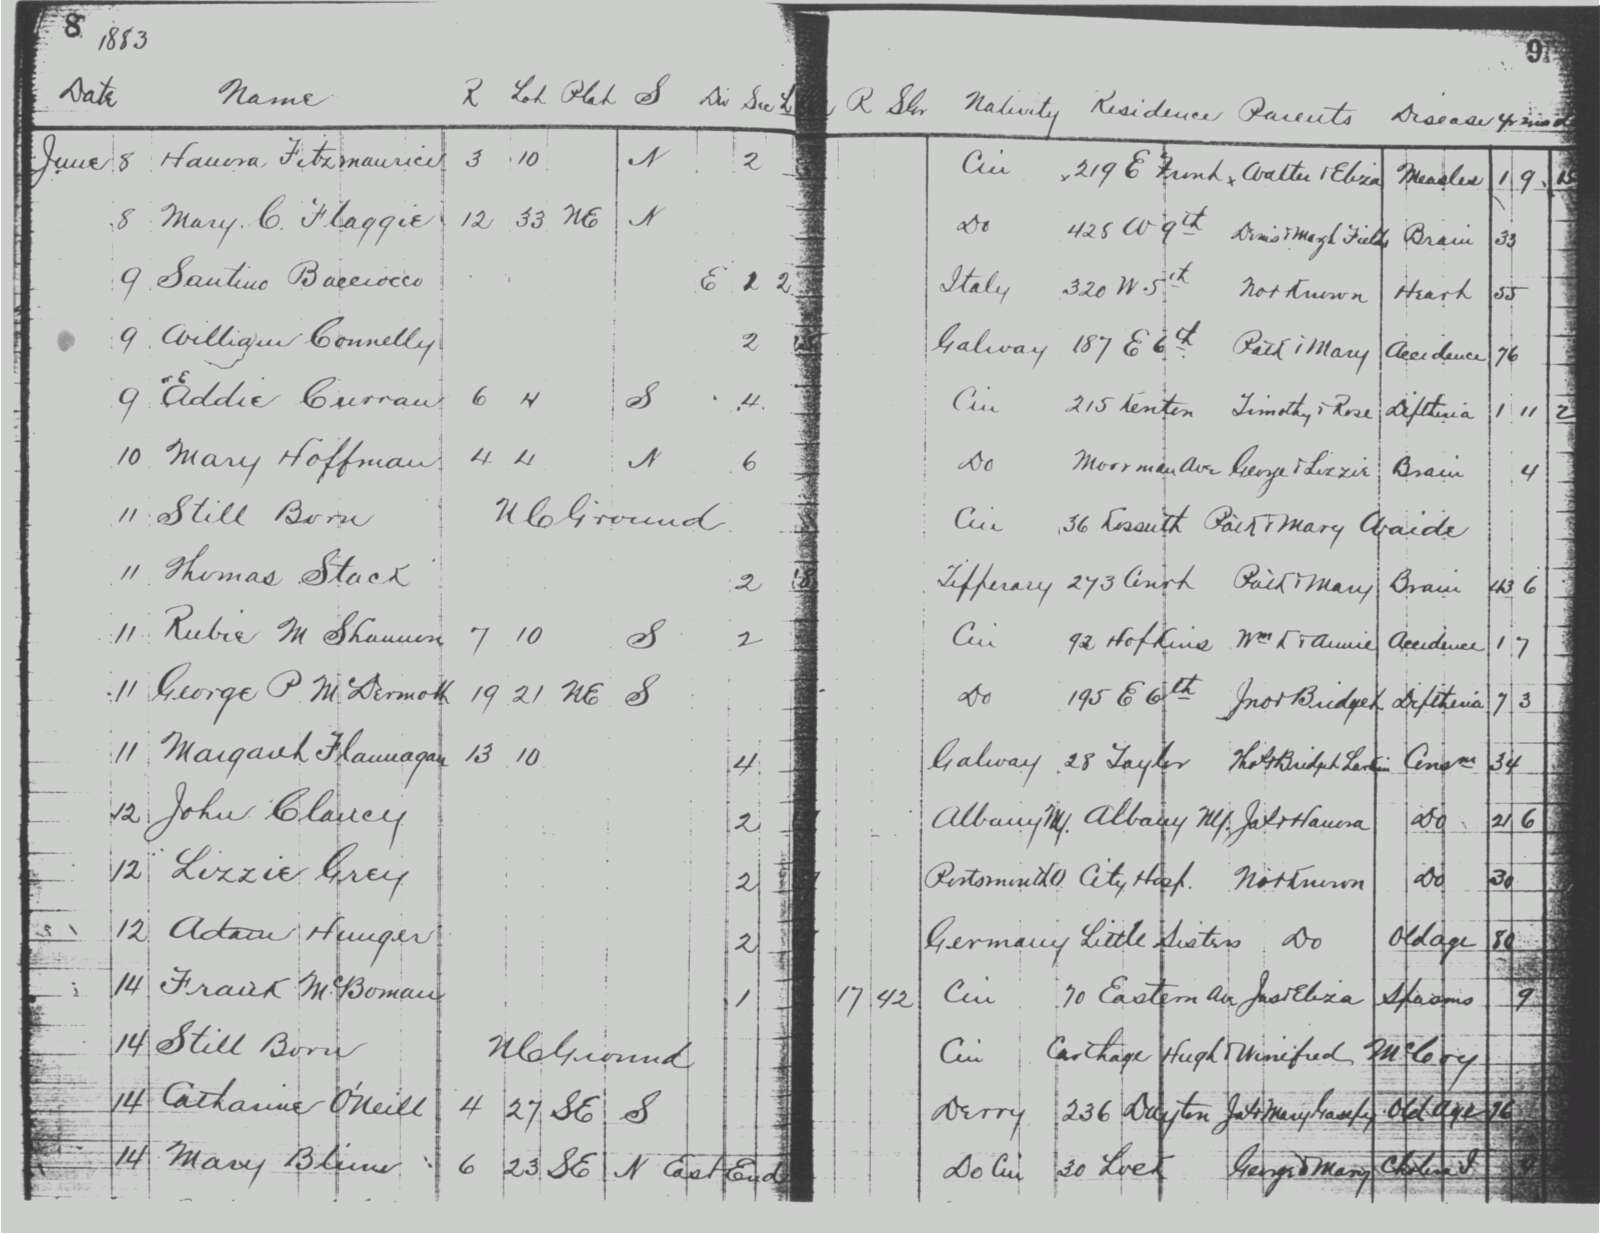 8 1883 9
Date Name R Lot Plat S Div Sec L R Gr Nativity Residence Parents Disease yr mo d
June 8 Hanora Fitzmaurice 3 10 N 2 Cin 219 E Front Walter & Eliza Measles 1 9 15
8 Mary. C. Flaggie 12 33 NE N Do 425 W 9th Denis & Margt Fields Brain 33
9 Santino Bacciocco E 1 2 Italy 320 W 5th Not Known Heart 55
9 William Connelly 2 Galway 187 E 6th Patk & Mary Accidence 76
9 Addie Curran 6 4 S 4 Cin 215 Kenton Timothy & Rose Diftheria 1 11 2
10 Mary Hoffman 4 4 N 6 Do Moorman Ave George & Lizzie Brain 4
11 Still Born N C Ground Cin 36 Kossuth Patk & Mary Waide
11 Thomas Stack 2 Tipperary 273 Court Patk & Mary Brain 43 6
11 Rubie M Shannon 7 10 S 2 Cin 92 Hopkins Wm K & Annie Accidence 1 7
11 George P McDermott 19 21 NE S Do 195 E 6th Jno & Bridget Diftheria 7 3
11 Margaret Flannagan 13 10 4 Galway 28 Taylor Thos & Bridget Larkin Consm 34
12 John Clancy 2 Albany NY. Albany NY. Jas & Hanora Do 21 6
12 Lizzie Grey 2 Portsmouth O City Hosp. Not Known Do 30
12 Adam Hunger 2 Germany Little Sisters Do Old age 80
14 Frank McBoman 1 17 42 Cin 70 Eastern Av Jas & Eliza Spasms 9
14 Still Born N C Ground Cin Carthage Hugh & Winifred McCoy
14 Catharine O'Neill 4 27 SE S Derry 236 Dayton Jas & Mary Old Age 76
14 Mary Blume 6 23 SE N East End Do Cin 30 Lock George & Mary Cholera I 9